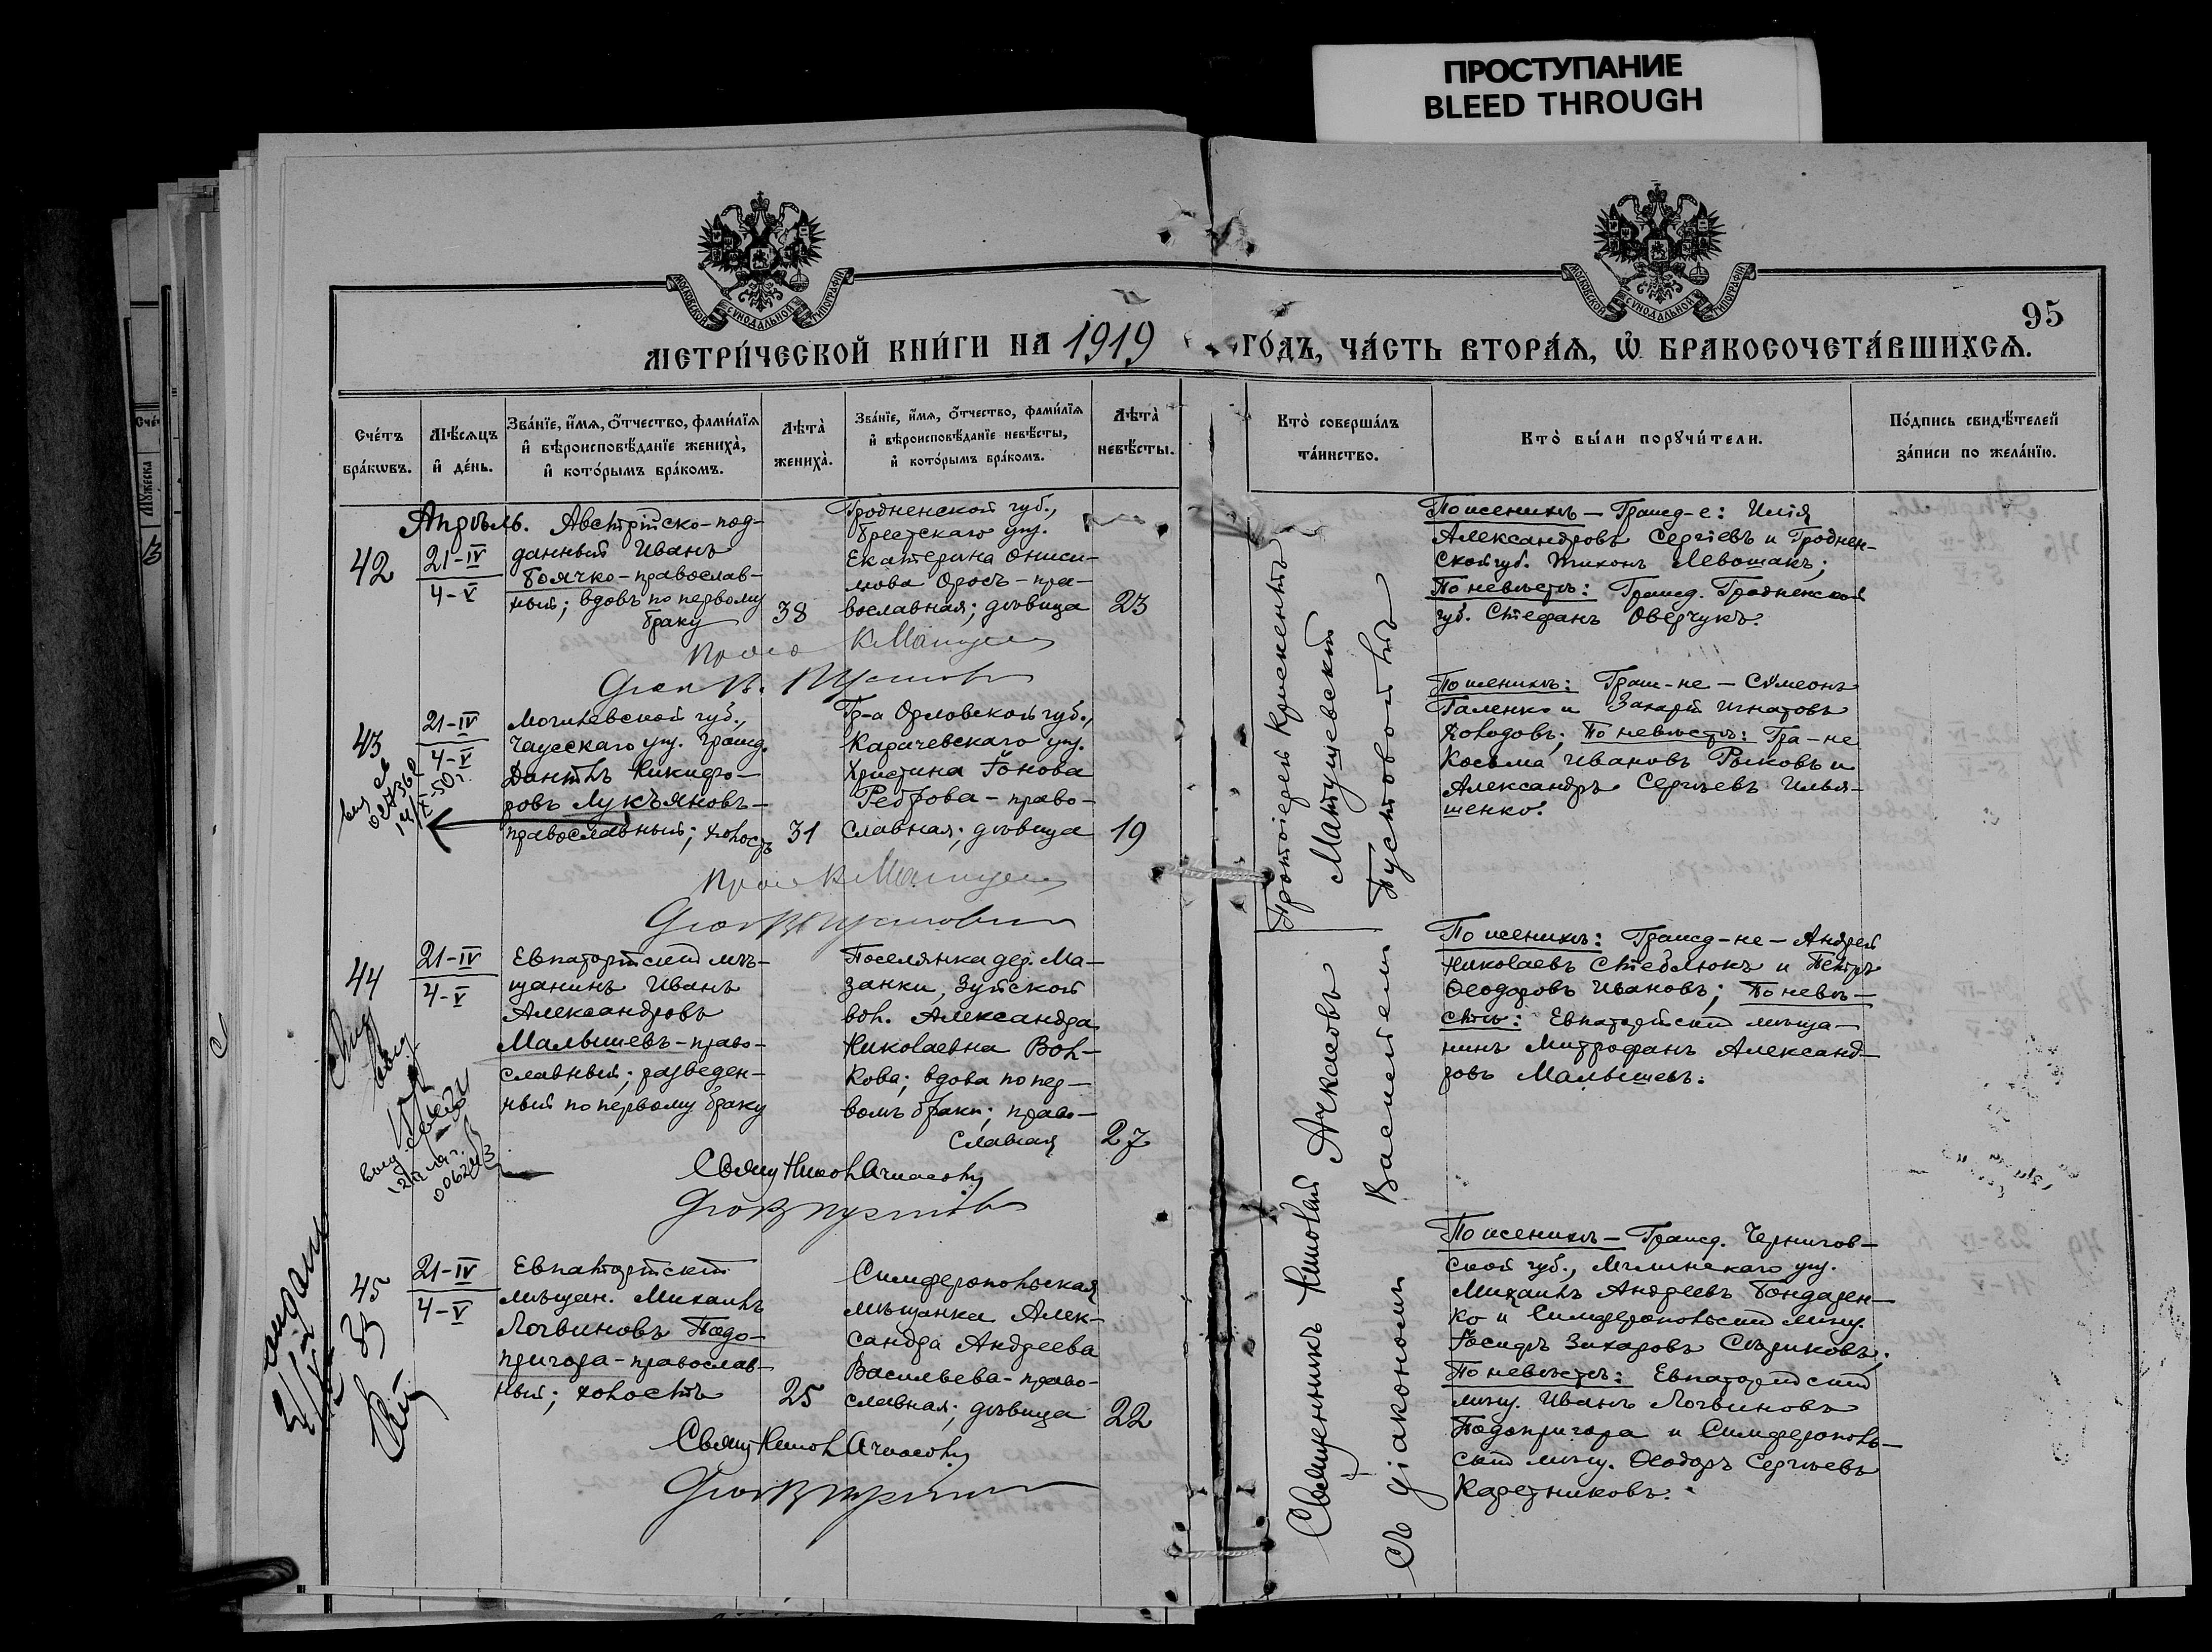 ПРОСТУПАНИЕ
BLEED THROUGH
МОСКОВСКОЙ СѴНОДАЛЬНОЙ ТИПОГРАФІИ
МОСКОВСКОЙ СѴНОДАЛЬНОЙ ТИПОГРАФІИ
95
МЕТРИ́ЧЕСКОЙ КНИ́ГИ НА 1919 ГО́ДЪ, ЧА́СТЬ ВТОРА́Ѧ, Ѡ҆ БРАКОСОЧЕТА́ВШИХСѦ.
Сче́тъ бра́кѡвъ.
Мѣ́сѧцъ и҆ де́нь.
Зва́нїе, и҆́мѧ, ѻ҆́тчество, фами́лїѧ
и҆ вѣроисповѣ́данїе женихà,
и҆ кото́рымъ бра́комъ.
Лѣ́та женихà.
Зва́нїе, и҆́мѧ, ѻ҆́тчество, фами́лїѧ
и҆ вѣроисповѣ́данїе невѣ́сты,
и҆ кото́рымъ бра́комъ.
Лѣ́та невѣ́сты.
Ктò соверша́лъ та́инство.
Ктò бы́ли порꙋчи́тели.
По́дпись свидѣ́телей за́писи по жела́нїю.
Апрѣль.
42
21-IV
4-V
Австрійско-под-
данный Иванъ
Боячко-православ-
ный; вдовъ по первому
браку
38
Гродненской губ.,
Брестскаго уѣз.
Екатерина Ониси-
мова Орось-пра-
вославная; дѣвица
23
По женихѣ - Гражд-е: Илія
Александровъ Сергіевъ и Гроднен-
ской губ. Тихонъ Левошакъ;
По невѣстѣ: Гражд. Гродненской
губ. Стефанъ Оверчукъ.
43
21-IV
4-V
Могилевской губ.,
Чаусскаго уѣз. гражд.
Даніилъ Никифо-
ровъ Лукъяновъ-
православный; холостъ
31
Гр-а Орловской губ.,
Карачевскаго уѣз.
Христина Іонова
Реброва - право-
славная; дѣвица
19
По женихѣ: Граж-не - Сѵмеонъ
Галенко и Захарій Игнатовъ
Холодовъ; По невѣстѣ: Гра-не
Косьма Ивановъ Рыковъ и
Александръ Сергѣевъ Илья-
шенко.
Протоіерей Крискентъ
Матушевскій
44
21-IV
4-V
Евпаторійскій мѣ-
щанинъ Иванъ
Александровъ
Малышевъ-право-
славный; разведен-
ный по первому браку
Поселянка дер. Ма-
занки, Зуйской
вол. Александра
Николаевна Вол-
кова; вдова по пер-
вомъ бракѣ; право-
славная
27
По женихѣ: Гражд-не - Андрей
Николаевъ Стеблюкъ и Петръ
Ѳеодоровъ Ивановъ; По невѣ-
стѣ: Евпаторійскій мѣща-
нинъ Митрофанъ Александ-
ровъ Малышевъ.
45
21-IV
4-V
Евпаторійскій
мѣщан. Михаилъ
Логвиновъ Подо-
пригора-православ-
ный; холостъ
25
Симферопольская
мѣщанка Алек-
сандра Андреева
Васильева-право-
славная; дѣвица
22
По женихѣ - Гражд. Чернигов-
ской губ., Мглинскаго уѣз.
Михаилъ Андреевъ Бондарен-
ко и Симферопольскій мѣщ.
Іосифъ Захаровъ Сѣриковъ.
По невѣстѣ: Евпаторійскій
мѣщ. Иванъ Логвиновъ
Подопригора и Симферополь-
скій мѣщ. Ѳеодоръ Сергѣевъ
Каретниковъ.
Священникъ Николай Ачкасовъ
Съ діакономъ Василіемъ Пустовойтъ